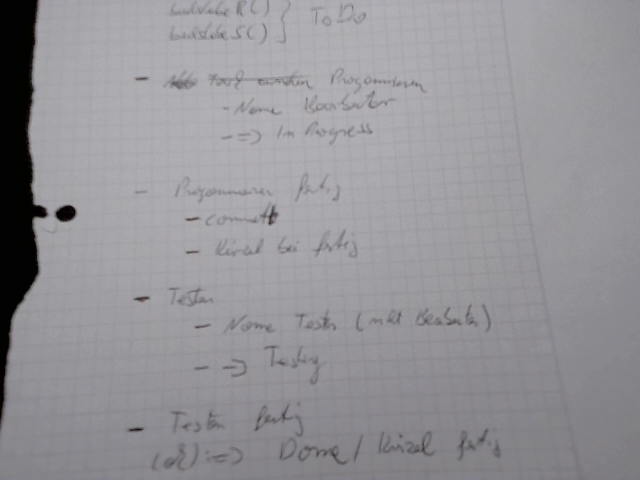 buchstabeR() } ToDo
buchstabeS()
- Programmieren
- Name Bearbeiter
- => In Progress
- Programmieren fertig
- committ
- Kürzel bei fertig
- Testen
- Name Tester (nicht Bearbeiter)
- => Testing
- Testen fertig
(ok) :=> Done / Kürzel fertig